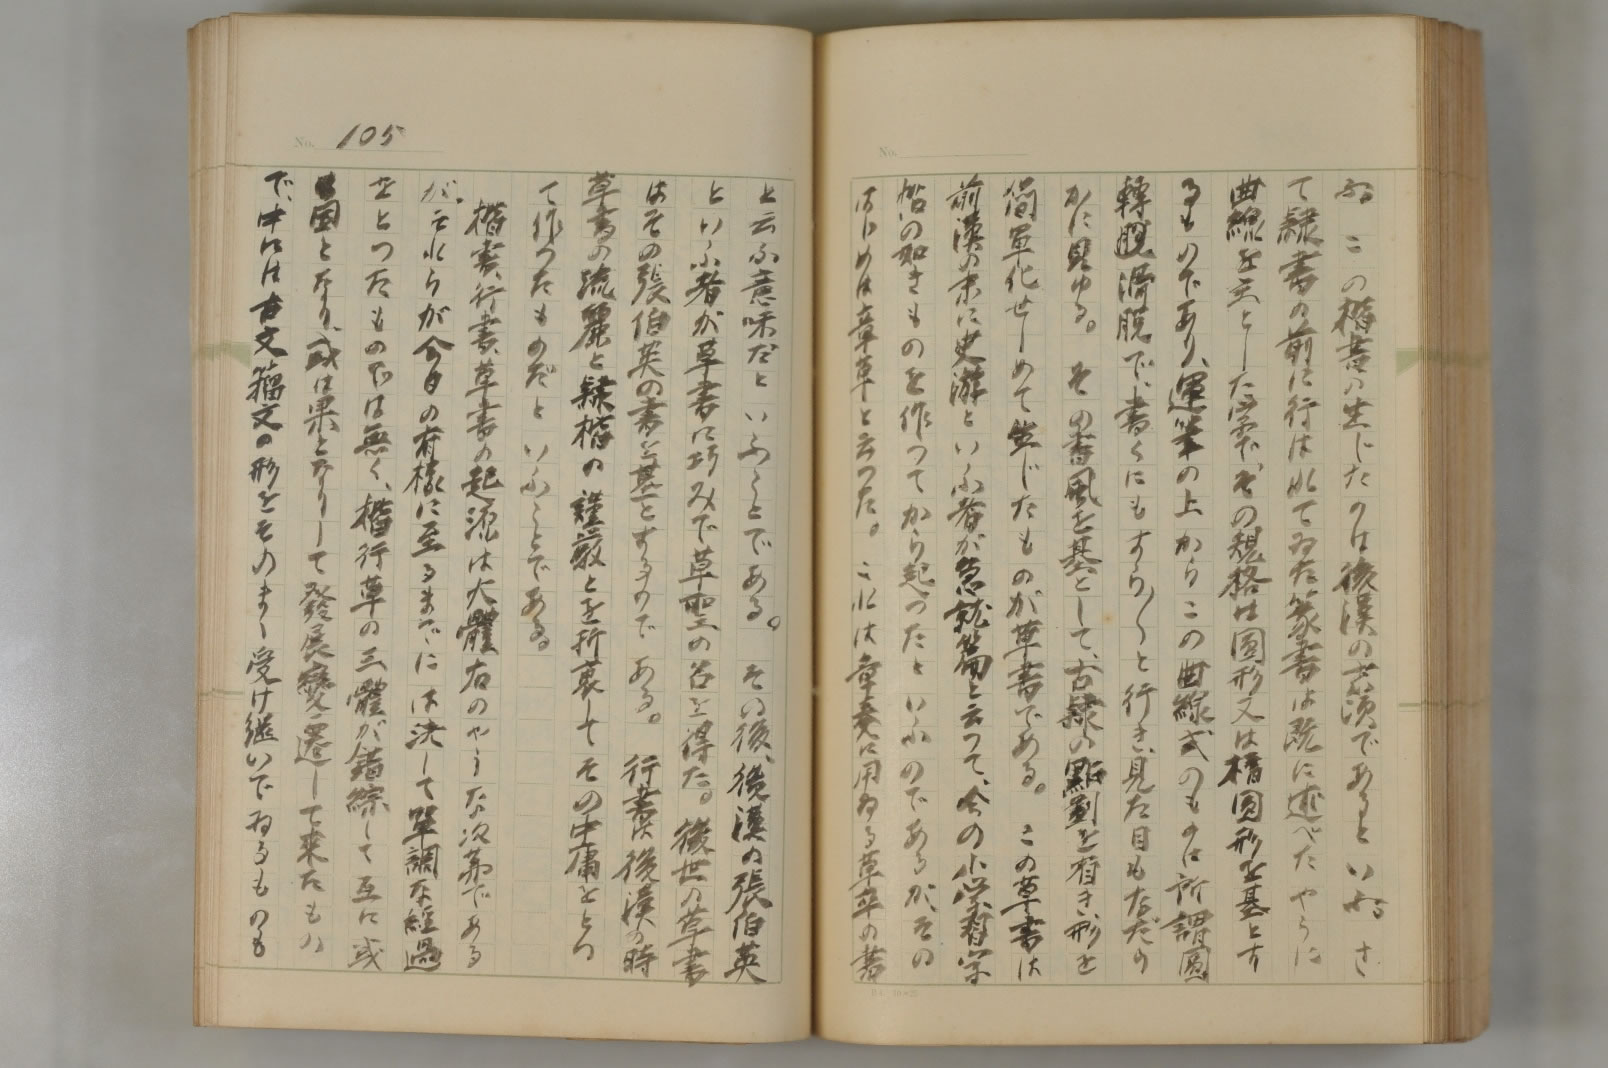 ふ。この楷書の生じたのは後漢の末頃であるといふ。さ
て隷書の前に行はれてゐた篆書は既に述べたやうに
曲線を主とした字で、その規格は圓形又は楕圓形を基とす
るものであり、運筆の上からこの曲線式のものは所謂圓
轉滑脱で、書くにもすら〱と行き、見た目もなだら
かに見ゆる。その書風を基として、古隷の點劃を省き形を
簡単化せしめて生じたものが草書である。この草書は
前漢の末に史游といふ者が急就篇と云つて、今の小学習字
帖の如きものを作つてから起つたといふのであるが、その
はじめは章草と云つた。これは章奏に用ゐる草卒の書
No. 105
と云ふ意味だといふことである。その後、後漢の張伯英
といふ者が草書に巧みで草聖の名を得た。後世の草書
はその張伯英の書を基とするのである。行書は後漢の時
草書の流麗と隷楷の謹厳とを折衷してその中庸をとつ
て作つたものだといふことである。
楷書、行書、草書の起源は大體右のやうな次第である
が、それらが今日の有様に至るまでには決して単調な経過
をとつたものでは無く、楷行草の三體が錯綜して互に或
は因となり、或は果となりして發展變遷して来たもの
で、中には古文籀文の形をそのまゝ受け継いでゐるものも
No.